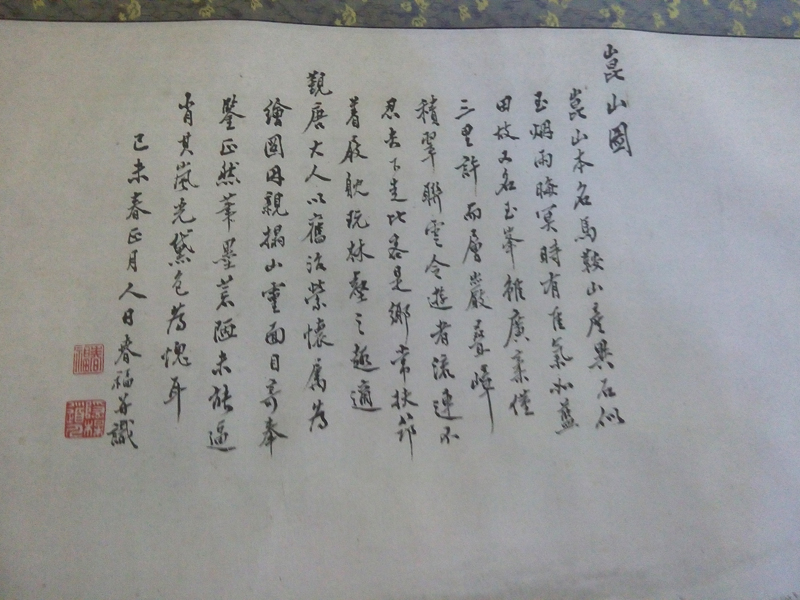 崑山圖
崑山本名馬鞍山產異石似
玉烟雨晦冥時有佳氣如藍
田故又名玉峯雖廣袤僅
三里許而層巖疊嶂
積翠聯雲令遊者流連不
忍去下走此客是鄉常扶筇
着屐躭玩林壑之趣適
觀唐大人以舊治縈懷屬為
繪圖因親搨山靈面目寄奉
鑒正然筆墨荒陋未能逼
肖其嵐光黛色為愧耳
己未春正月人日春福并識